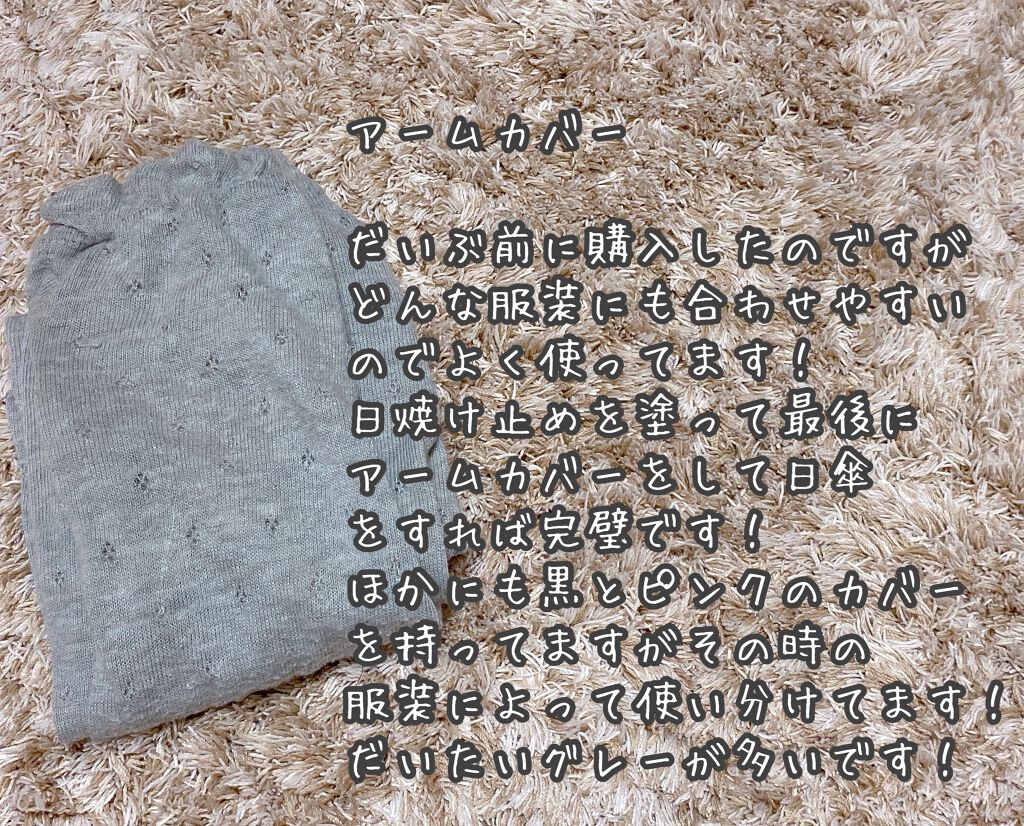 アームカバー
だいぶ前に購入したのですが
どんな服装にも合わせやすい
のでよく使ってます！
日焼け止めを塗って最後に
アームカバーをして日傘
をすれば完璧です！
ほかにも黒とピンクのカバー
を持ってますがその時の
服装によって使い分けてます！
だいたいグレーが多いです！